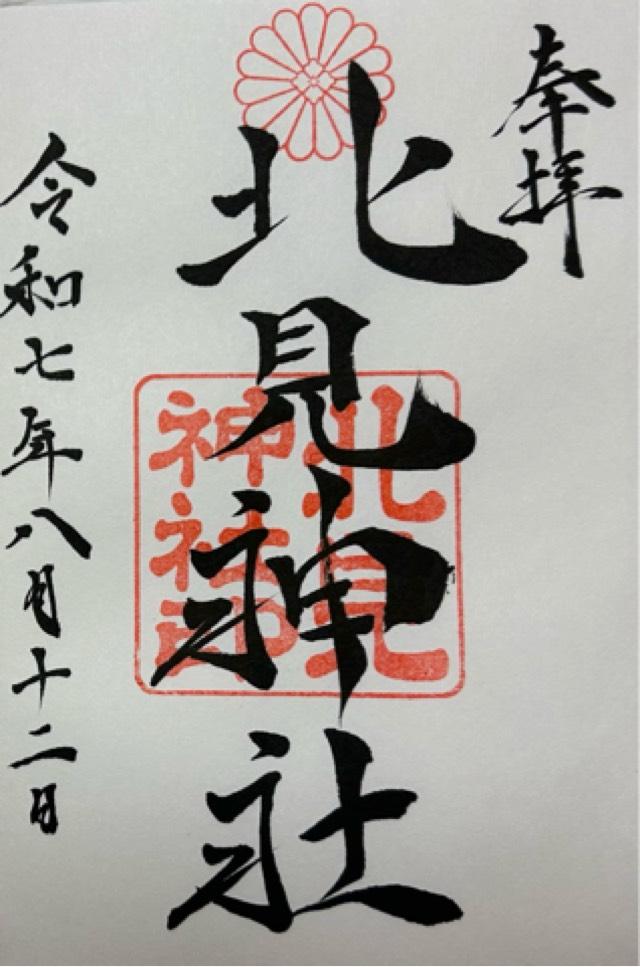 奉拝
北見神社
北見
神社印
令和七年八月十二日